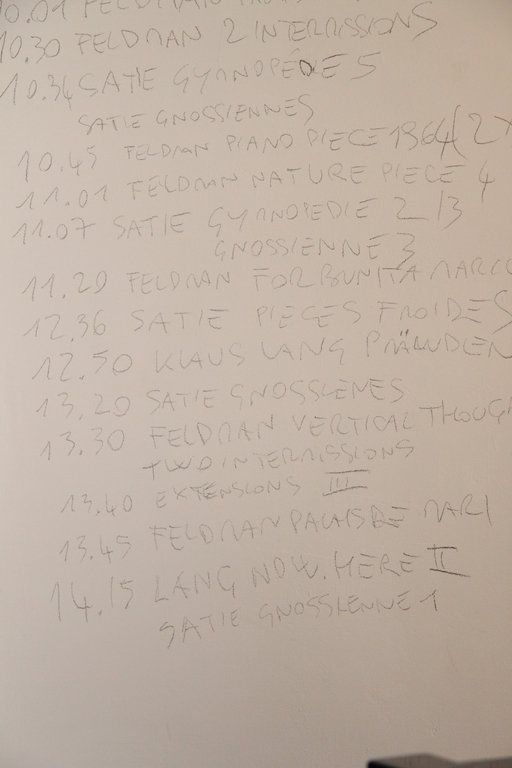 10.01 FELDMAN
10.30 FELDMAN 2 INTERMISSIONS
10.34 SATIE GYMNOPÉDIE 5
SATIE GNOSSIENNES
10.45 FELDMAN PIANO PIECE 1964 (2X
11.01 FELDMAN NATURE PIECE 4
11.07 SATIE GYMNOPEDIE 2/3
GNOSSIENNE 3
11.20 FELDMAN FOR BUNITA MARCU
12.36 SATIE PIECES FROIDES
12.50 KLAUS LANG PRÄLUDIEN
13.20 SATIE GNOSSIENES
13.30 FELDMAN VERTICAL THOUGH
TWO INTERMISSIONS
13.40 EXTENSIONS III
13.45 FELDMAN PALAIS DE MARI
14.15 LANG NOW.HERE II
SATIE GNOSSIENNE 1